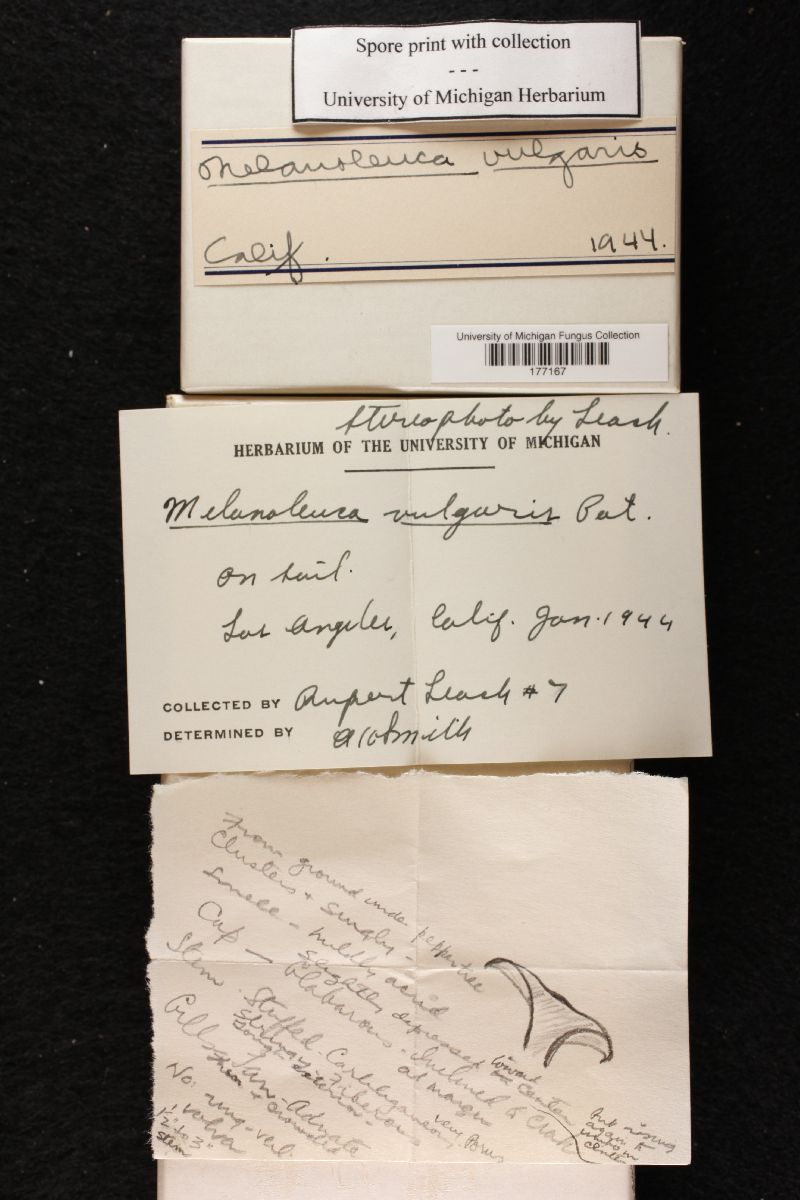 Spore print with collection
- - -
University of Michigan Herbarium
Melanoleuca vulgaris
Calif. 1944.
University of Michigan Fungus Collection
177167
Stereophoto by Leach.
HERBARIUM OF THE UNIVERSITY OF MICHIGAN
Melanoleuca vulgaris Pat.
on soil.
Los Angeles, Calif. Jan. 1944
COLLECTED BY Rupert Leach #7
DETERMINED BY AHSmith
From ground under pepper tree
Clusters + singly -
Smell - mildly acid
Slightly depressed toward center
but rising again to umbo in center
Cap - Glabarous - Inclined to crack at margin
Stem. Stuffed - Cartilaginous
Stringy - Fiberous
tough exterior -
Gills. Tan - Adnate
thin + crowded
No. ring - veil
volva
1½" to 3"
stem